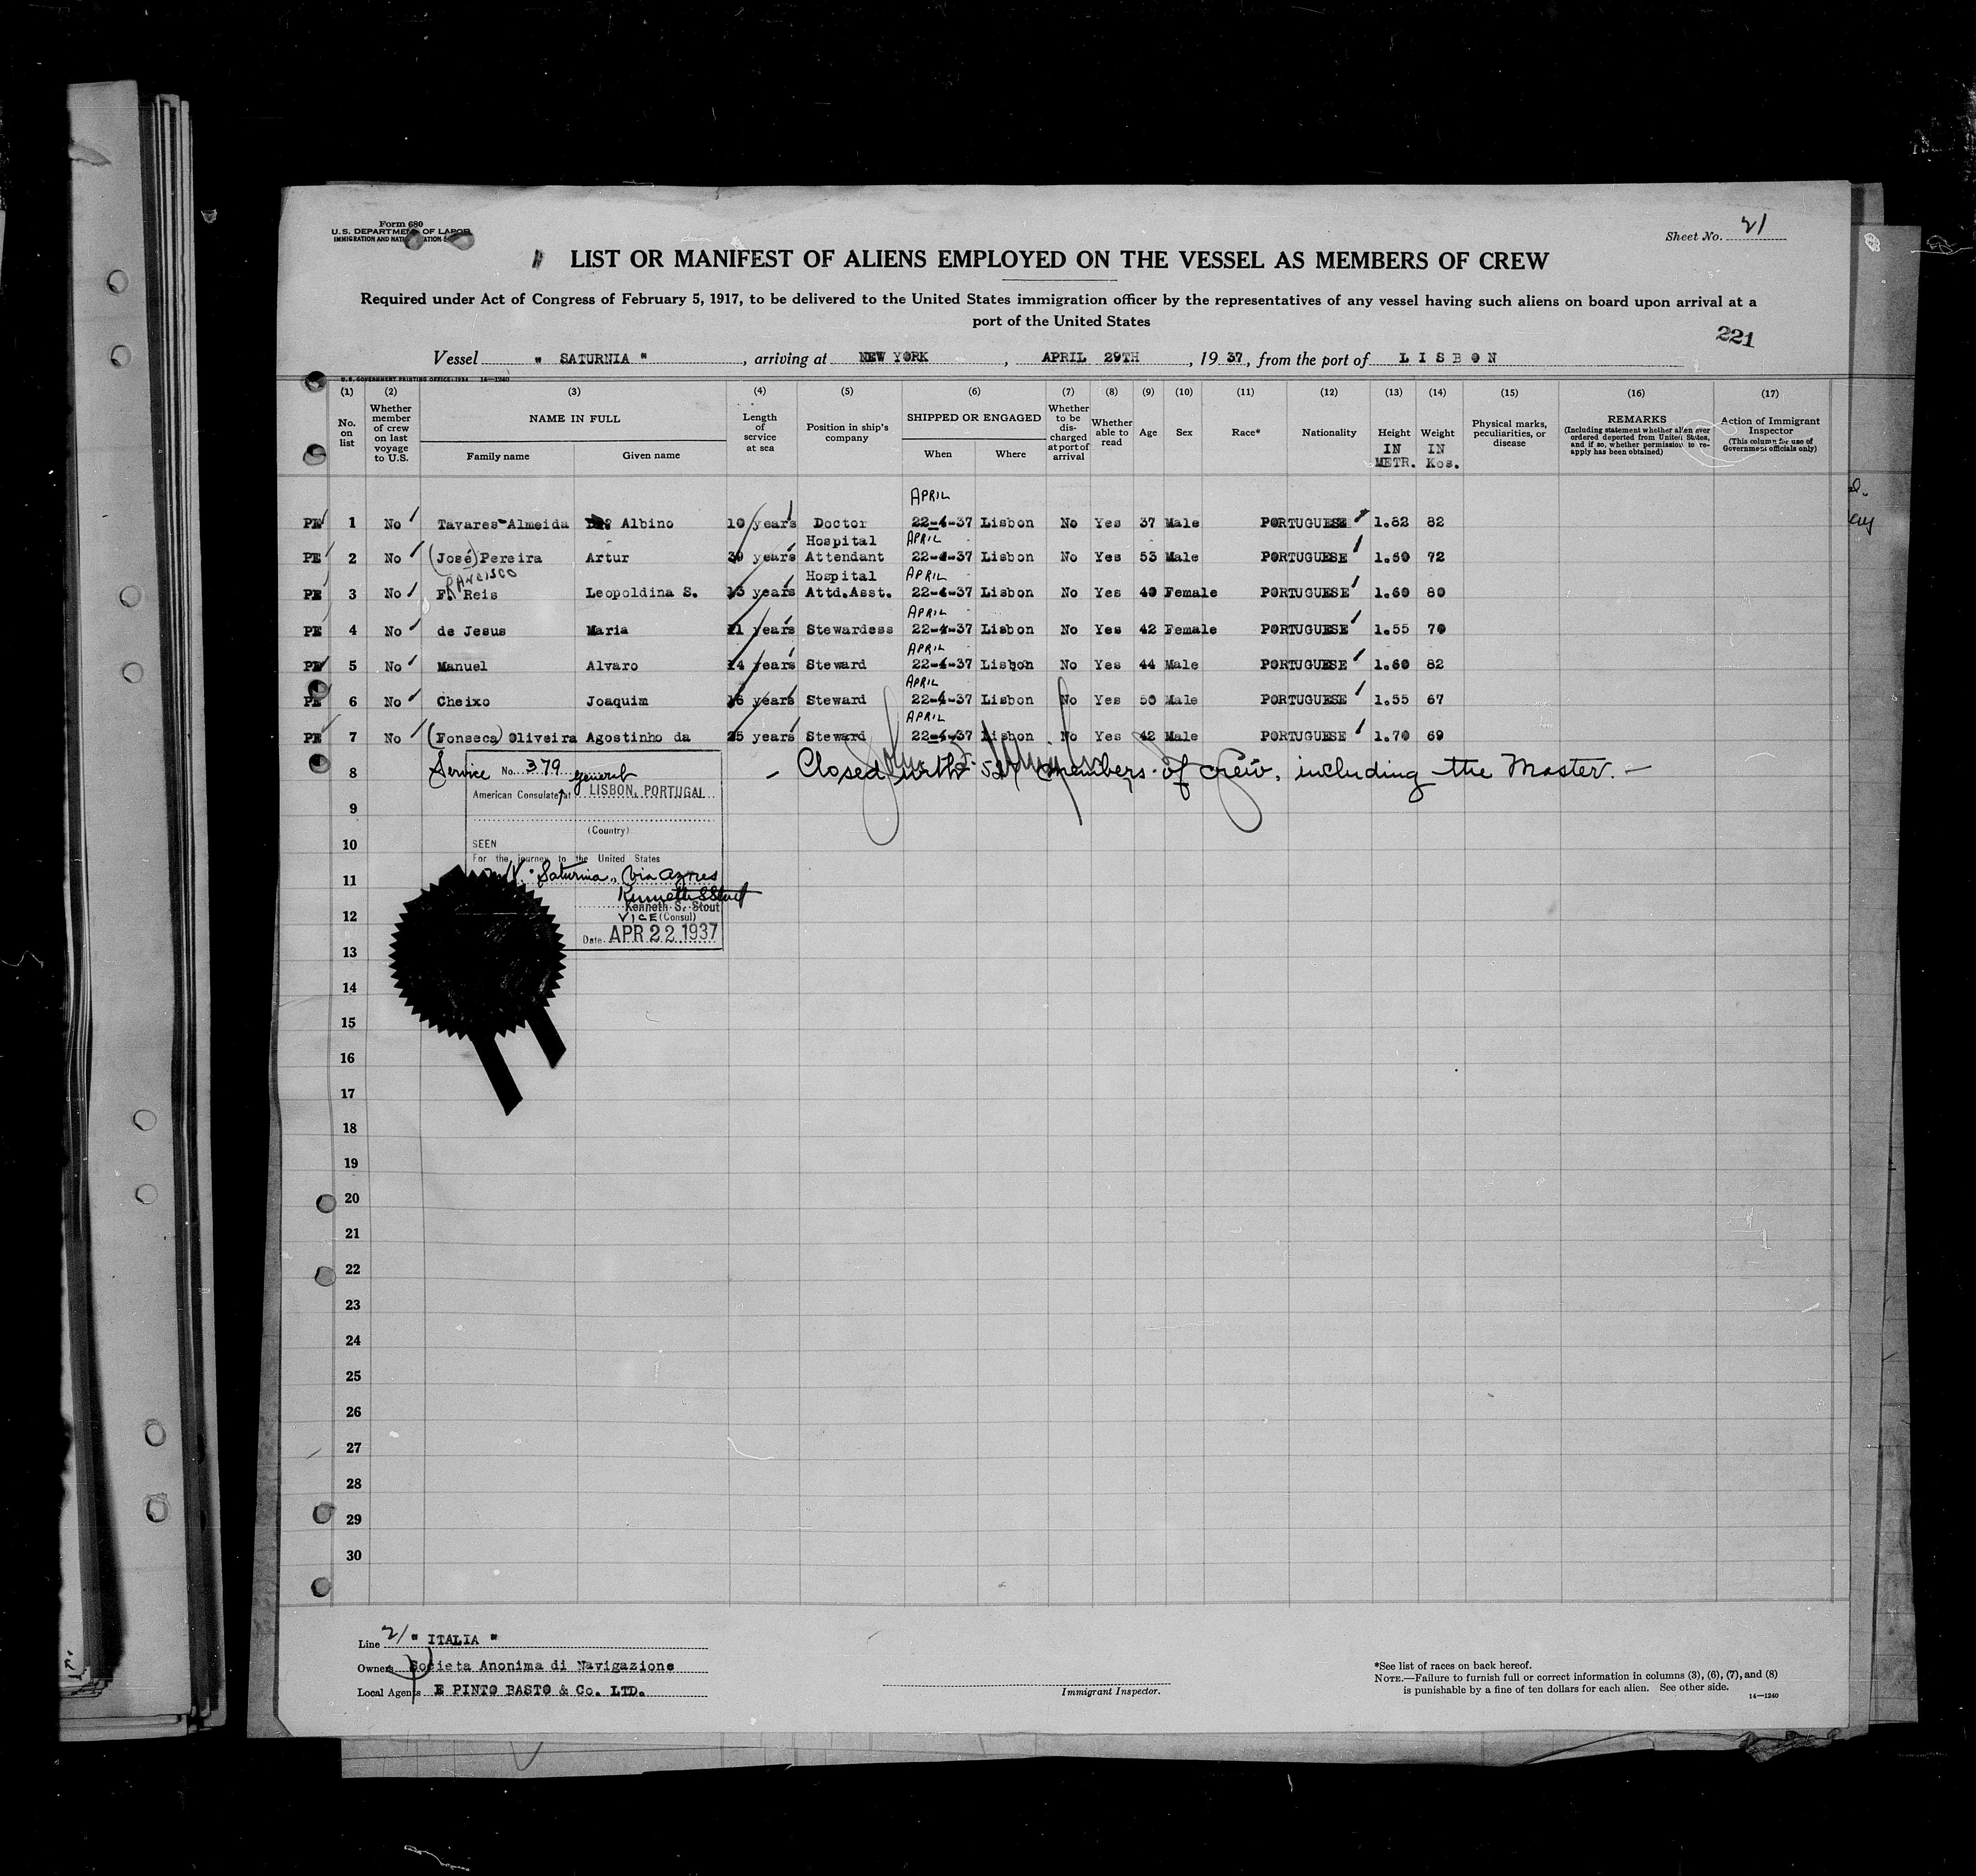 Form 680
U.S. DEPARTMENT OF LABOR
IMMIGRATION AND
Sheet No. 21
LIST OR MANIFEST OF ALIENS EMPLOYED ON THE VESSEL AS MEMBERS OF CREW
Required under Act of Congress of February 5, 1917, to be delivered to the United States immigration officer by the representatives of any vessel having such aliens on board upon arrival at a
port of the United States
221
Vessel " SATURNIA ", arriving at NEW YORK, APRIL 29TH, 1937, from the port of LISBON
U.S. GOVERNMENT PRINTING OFFICE: 1934 14—1240
(1) (2) (3) (4) (5) (6) (7) (8) (9) (10) (11) (12) (13) (14) (15) (16) (17)
No. on list Whether member of crew on last voyage to U.S. NAME IN FULL Family name Given name Length of service at sea Position in ship's company SHIPPED OR ENGAGED When Where Whether to be discharged at port of arrival Whether able to read Age Sex Race* Nationality Height IN METR. Weight IN Kos. Physical marks, peculiarities, or disease REMARKS (Including statement whether alien ever ordered deported from United States, and if so, whether permission to reapply has been obtained) Action of Immigrant Inspector (This column for use of Government officials only)
APRIL
PE 1 No Tavares Almeida Albino 10 years Doctor 22-4-37 Lisbon No Yes 37 Male PORTUGUESE 1.82 82
Hospital APRIL
PE 2 No (José) Pereira Artur years Attendant 22-4-37 Lisbon No Yes 53 Male PORTUGUESE 1.60 72
Hospital APRIL
PE 3 No F. Reis Leopoldina S. years Attd.Asst. 22-4-37 Lisbon No Yes 40 Female PORTUGUESE 1.60 80
APRIL
PE 4 No de Jesus Maria years Stewardess 22-4-37 Lisbon No Yes 42 Female PORTUGUESE 1.55 70
APRIL
PE 5 No Manuel Alvaro 14 years Steward 22-4-37 Lisbon No Yes 44 Male PORTUGUESE 1.60 82
APRIL
PE 6 No Cheixo Joaquim 16 years Steward 22-4-37 Lisbon No Yes 50 Male PORTUGUESE 1.55 67
APRIL
PE 7 No (Fonseca) Oliveira Agostinho da 25 years Steward 22-4-37 Lisbon No Yes 42 Male PORTUGUESE 1.70 69
8 Service No. 379 general
- Closed with members of crew, including the Master. -
American Consulate at LISBON, PORTUGAL
9
(Country)
10
SEEN
For the journey to the United States
11
"Saturnia" via Azores
Kenneth S. Stout
Kenneth S. Stout
12
VICE (Consul)
Date APR 22 1937
13
14
15
16
17
18
19
20
21
22
23
24
25
26
27
28
29
30
Line " ITALIA "
Owners Societa Anonima di Navigazione
Local Agents E PINTO BASTO & Co. LTD.
Immigrant Inspector.
*See list of races on back hereof.
NOTE.—Failure to furnish full or correct information in columns (3), (6), (7), and (8)
is punishable by a fine of ten dollars for each alien. See other side.
14—1240